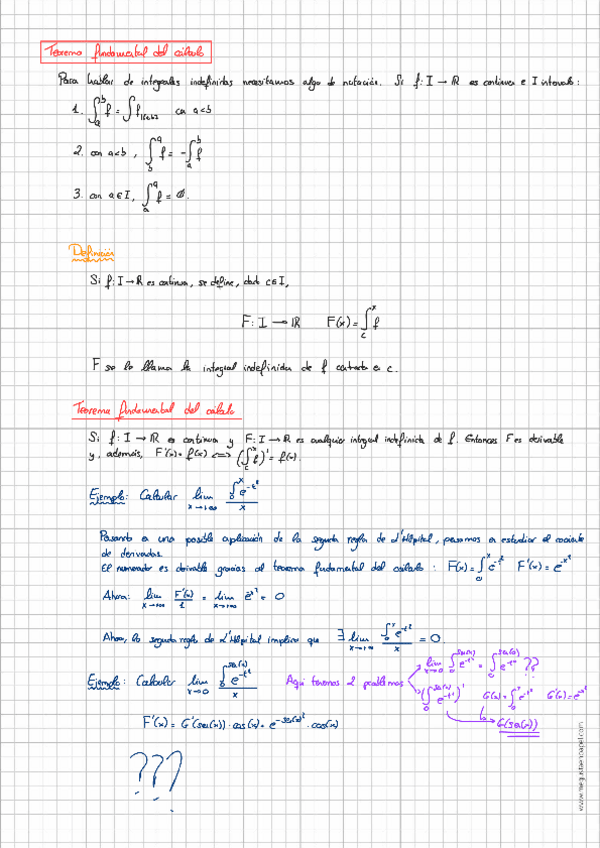 Teorema fundamental del cálculo
Para hablar de integrales indefinidas necesitamos algo de notación. Si f: I → ℝ es continua e I intervalo:
1. ∫_a^b f = ∫ f_|[a,b] con a<b
2. con a<b, ∫_b^a f = -∫_a^b f
3. con a∈I, ∫_a^a f = 0.
Definición
Si f: I → ℝ es continua, se define, dado c∈I,
F: I → ℝ F(x) = ∫_c^x f
F se le llama la integral indefinida de f centrada en c.
Teorema fundamental del cálculo
Si f: I → ℝ es continua y F: I → ℝ es cualquier integral indefinida de f. Entonces F es derivable
y, además, F'(x) = f(x) <=> (∫_c^x f)' = f(x).
Ejemplo: Calcular lim_{x→+∞} ∫_0^x e^{-t²} / x
Pasando a una posible aplicación de la segunda regla de L'Hôpital, pasamos a estudiar el cociente
de derivadas.
El numerador es derivable gracias al teorema fundamental del cálculo: F(x) = ∫_0^x e^{-t²} F'(x) = e^{-x²}
Ahora: lim_{x→+∞} F'(x)/1 = lim_{x→+∞} e^{-x²} = 0
Ahora, la segunda regla de L'Hôpital implica que ∃ lim_{x→+∞} ∫_0^x e^{-t²} / x = 0.
Ejemplo: Calcular lim_{x→0} ∫_0^{sen(x)} e^{-t²} / x
Aquí tenemos 2 problemas
lim_{x→0} ∫_0^{sen(x)} e^{-t²} = ∫_0^{sen(0)} e^{-t²} ??
(∫_0^{sen(x)} e^{-t²})' G(x) = ∫_0^x e^{-t²} G'(x) = e^{-x²}
G(sen(x))
F'(x) = G'(sen(x)) · cos(x) = e^{-sen(x)²} · cos(x)
???
www.megustaenpapel.com